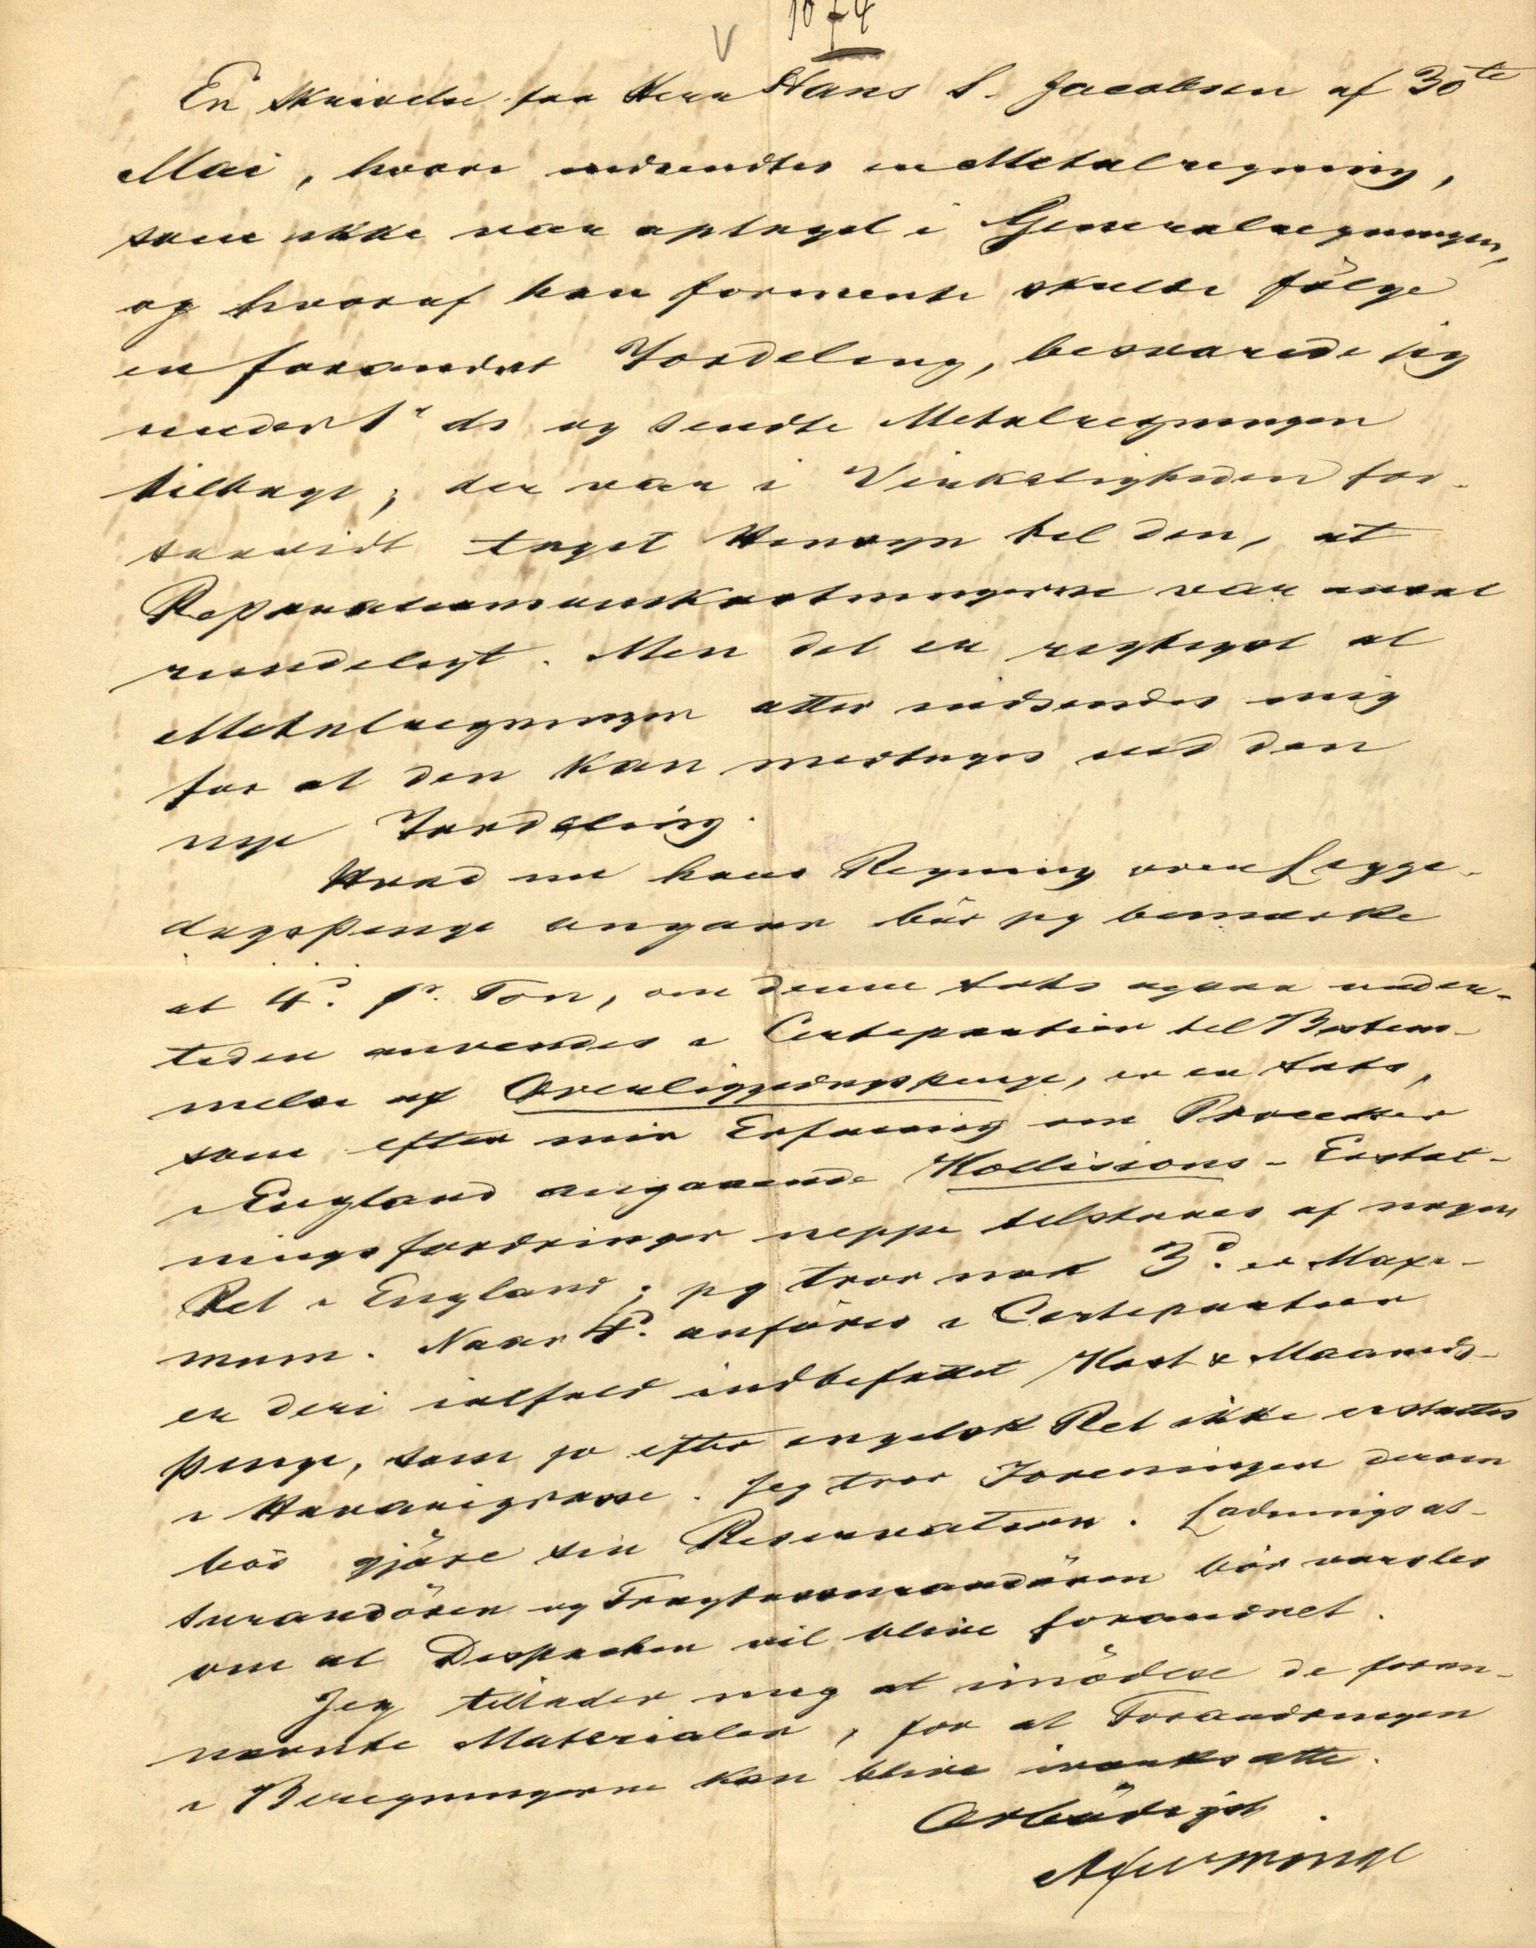 1874
En Skrivelse fra Herr Hans S. Jacobsen af 30te
Mai, hvori indsendtes en Metalregning,
som ikke var optaget i Generalregningen,
og hvoraf han formente skulde følge
en forandret Fordeling, besvarede jeg
under 1' ds og sendte Metalregningen
tilbage; der var i Virkeligheden for-
saavidt taget Hensyn til den, at
Reparationsomkostningerne var ansat
rundeligt. Men det er rigtigst at
Metalregningen atter indsendes mig
for at den kan medtages ved den
nye Fordeling.
Hvad nu hans Regning over Ligge-
dagspenge angaar bør jeg bemærke
at 4d. pr. Ton, om denne Sats ogsaa under-
tiden anvendes i Certepartier til Bestem-
melse af Overliggedagspenge, er en Sats,
som efter min Erfaring om Processer
i England angaaende Kollisions-Erstat-
ningsfordringer neppe tilstaaes af nogen
Ret i England; jeg tror nok 3d. er Maxi-
mum. Naar 4d. anføres i Certepartier
er deri ialfald indbefattet Kost & Maaneds-
penge, som jo efter engelsk Ret ikke erstattes
i Havarigrosse. Jeg tror Foreningen derom
bør gjøre sin Reservation. Ladningsas-
surandøren og Fragtassurandøren bør varsles
om at Dispachen vil blive forandret.
Jeg tillader mig at imødese de foran-
nævnte Materialer, for at Forandringen
i Beregningerne kan blive iværksatte.
Ærbødigst